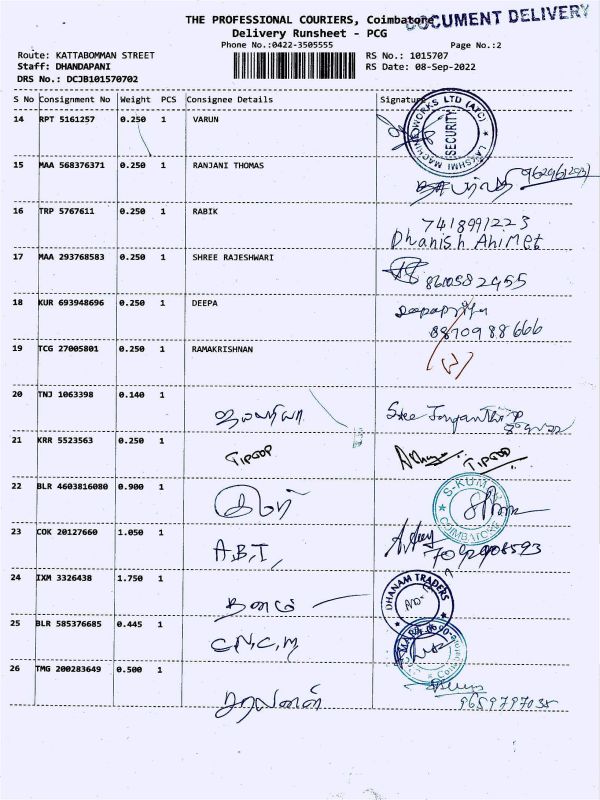 THE PROFESSIONAL COURIERS, Coimbatore
DOCUMENT DELIVERY
Delivery Runsheet - PCG
Phone No.:0422-3505555
Page No.:2
Route: KATTABOMMAN STREET
RS No.: 1015707
Staff: DHANDAPANI
RS Date: 08-Sep-2022
DRS No.: DCJB101570702
S No Consignment No Weight PCS Consignee Details Signature
14 RPT 5161257 0.250 1 VARUN
LAKSHMI MACHINE WORKS LTD (ATC)
SECURITY
15 MAA 568376371 0.250 1 RANJANI THOMAS
16 TRP 5767611 0.250 1 RABIK
7418991223
Dhanish Ahimet
17 MAA 293768583 0.250 1 SHREE RAJESHWARI
8610582955
18 KUR 693948696 0.250 1 DEEPA
8870988666
19 TCG 27005801 0.250 1 RAMAKRISHNAN
20 TNJ 1063398 0.140 1
21 KRR 5523563 0.250 1 TIPTOP TIPTOP
22 BLR 4603816080 0.900 1
S-KUMAR
COIMBATORE
23 COK 20127660 1.050 1 A,B,T,
7092908593
24 IXM 3326438 1.750 1
DHANAM TRADERS
25 BLR 585376685 0.445 1 C,N,C,M
26 TMG 200283649 0.500 1
9659797035